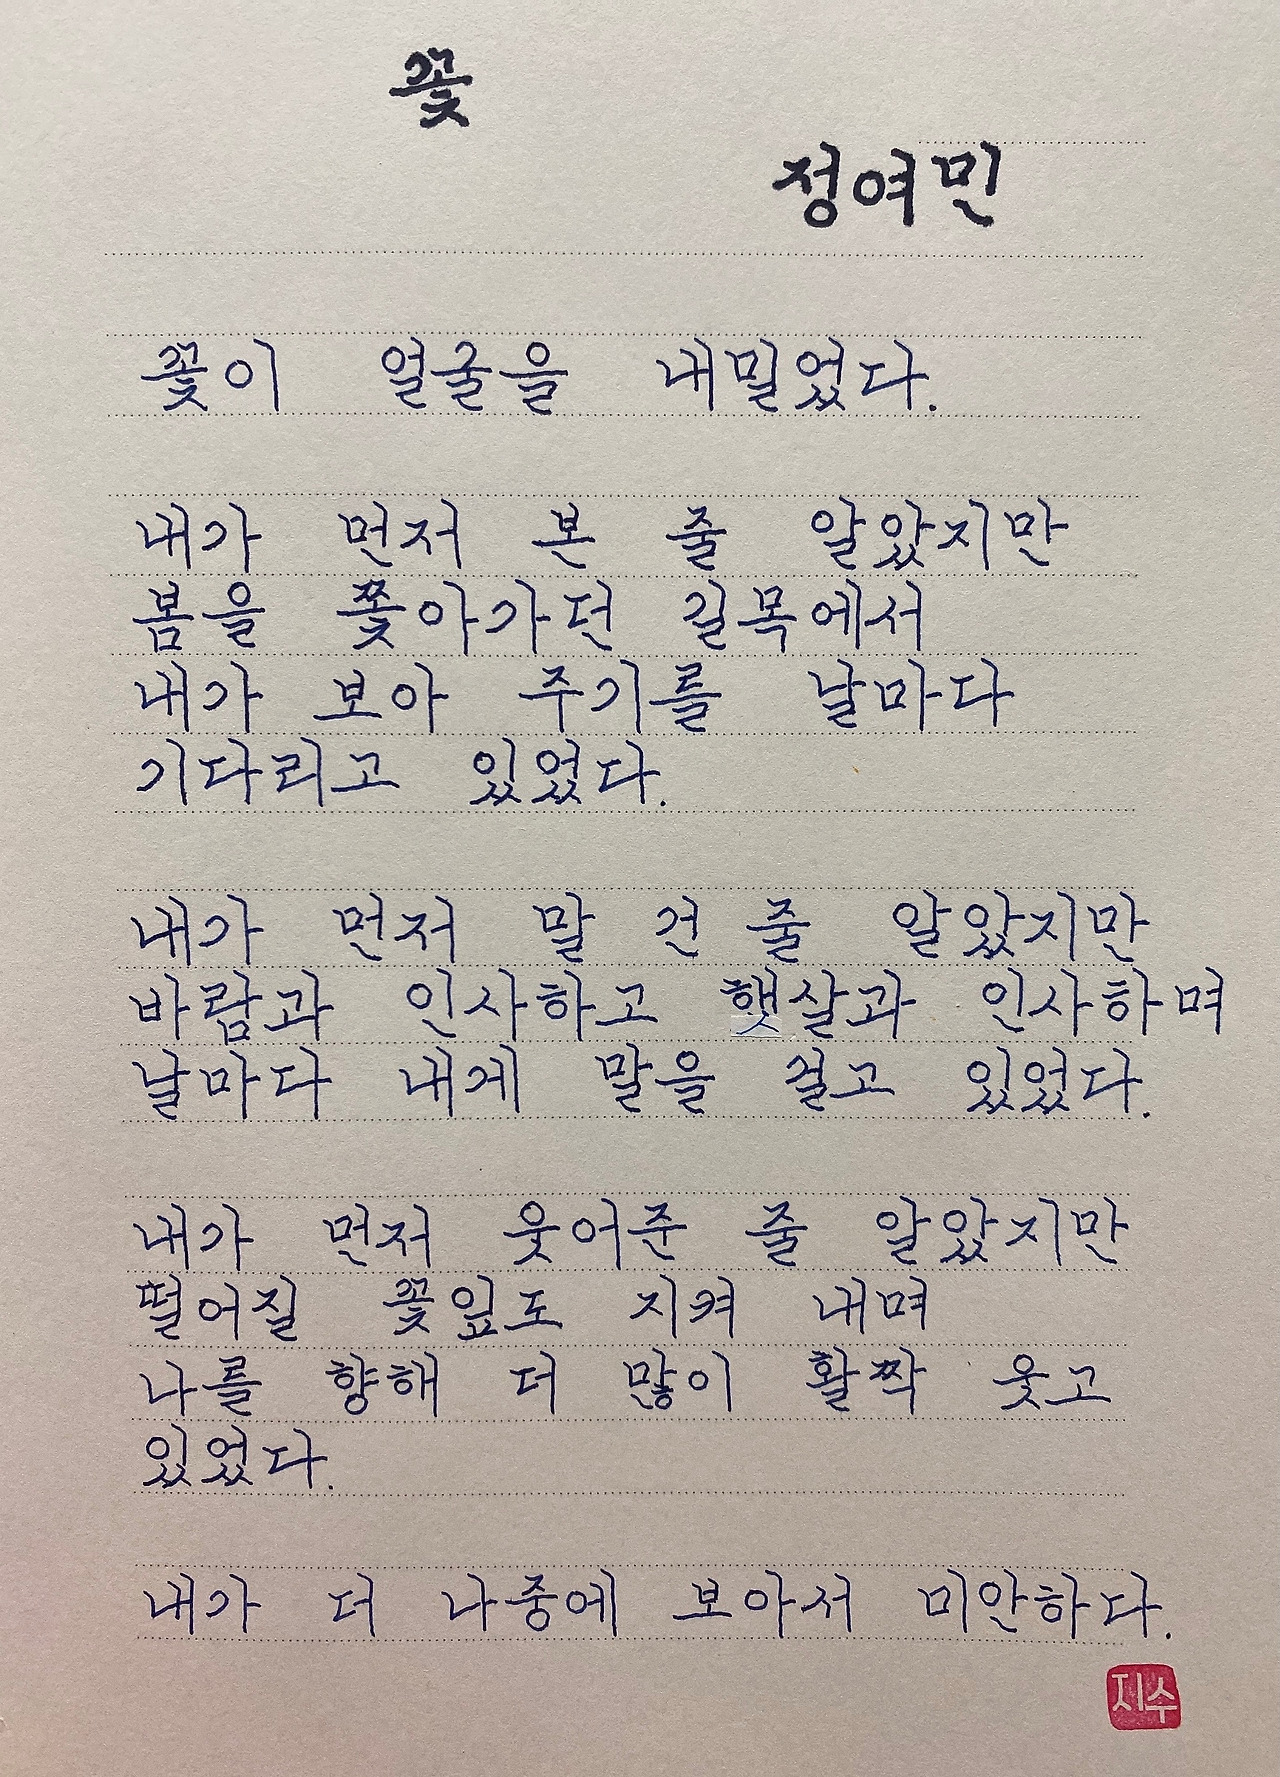 꽃
정여민
꽃이 얼굴을 내밀었다.
내가 먼저 본 줄 알았지만
봄을 쫓아가던 길목에서
내가 보아 주기를 날마다
기다리고 있었다.
내가 먼저 말 건 줄 알았지만
바람과 인사하고 햇살과 인사하며
날마다 내게 말을 걸고 있었다.
내가 먼저 웃어준 줄 알았지만
떨어질 꽃잎도 지켜 내며
나를 향해 더 많이 활짝 웃고
있었다.
내가 더 나중에 보아서 미안하다.
지수